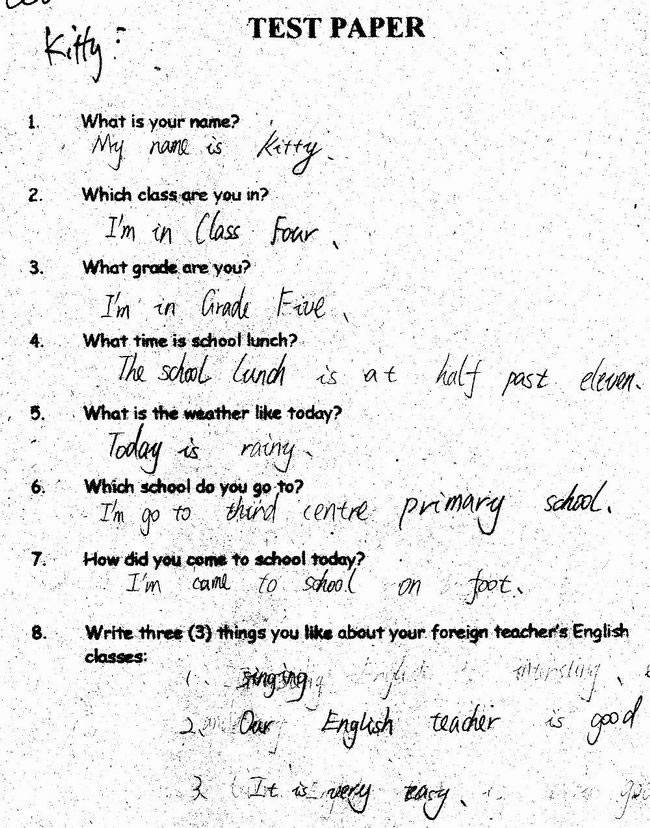 TEST PAPER
Kitty:
1. What is your name?
My name is Kitty.
2. Which class are you in?
I'm in Class Four.
3. What grade are you?
I'm in Grade Five.
4. What time is school lunch?
The school lunch is at half past eleven.
5. What is the weather like today?
Today is rainy.
6. Which school do you go to?
I'm go to third centre primary school.
7. How did you come to school today?
I'm came to school on foot.
8. Write three (3) things you like about your foreign teacher's English
classes:
1. singing
2. Our English teacher is good
3. It is very easy.